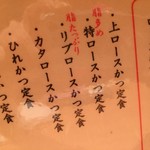 ・上ロースかつ定食
脂多め
・特ロースかつ定食
脂たっぷり
・リブロースかつ定食
・カタロースかつ定食
・ひれかつ定食